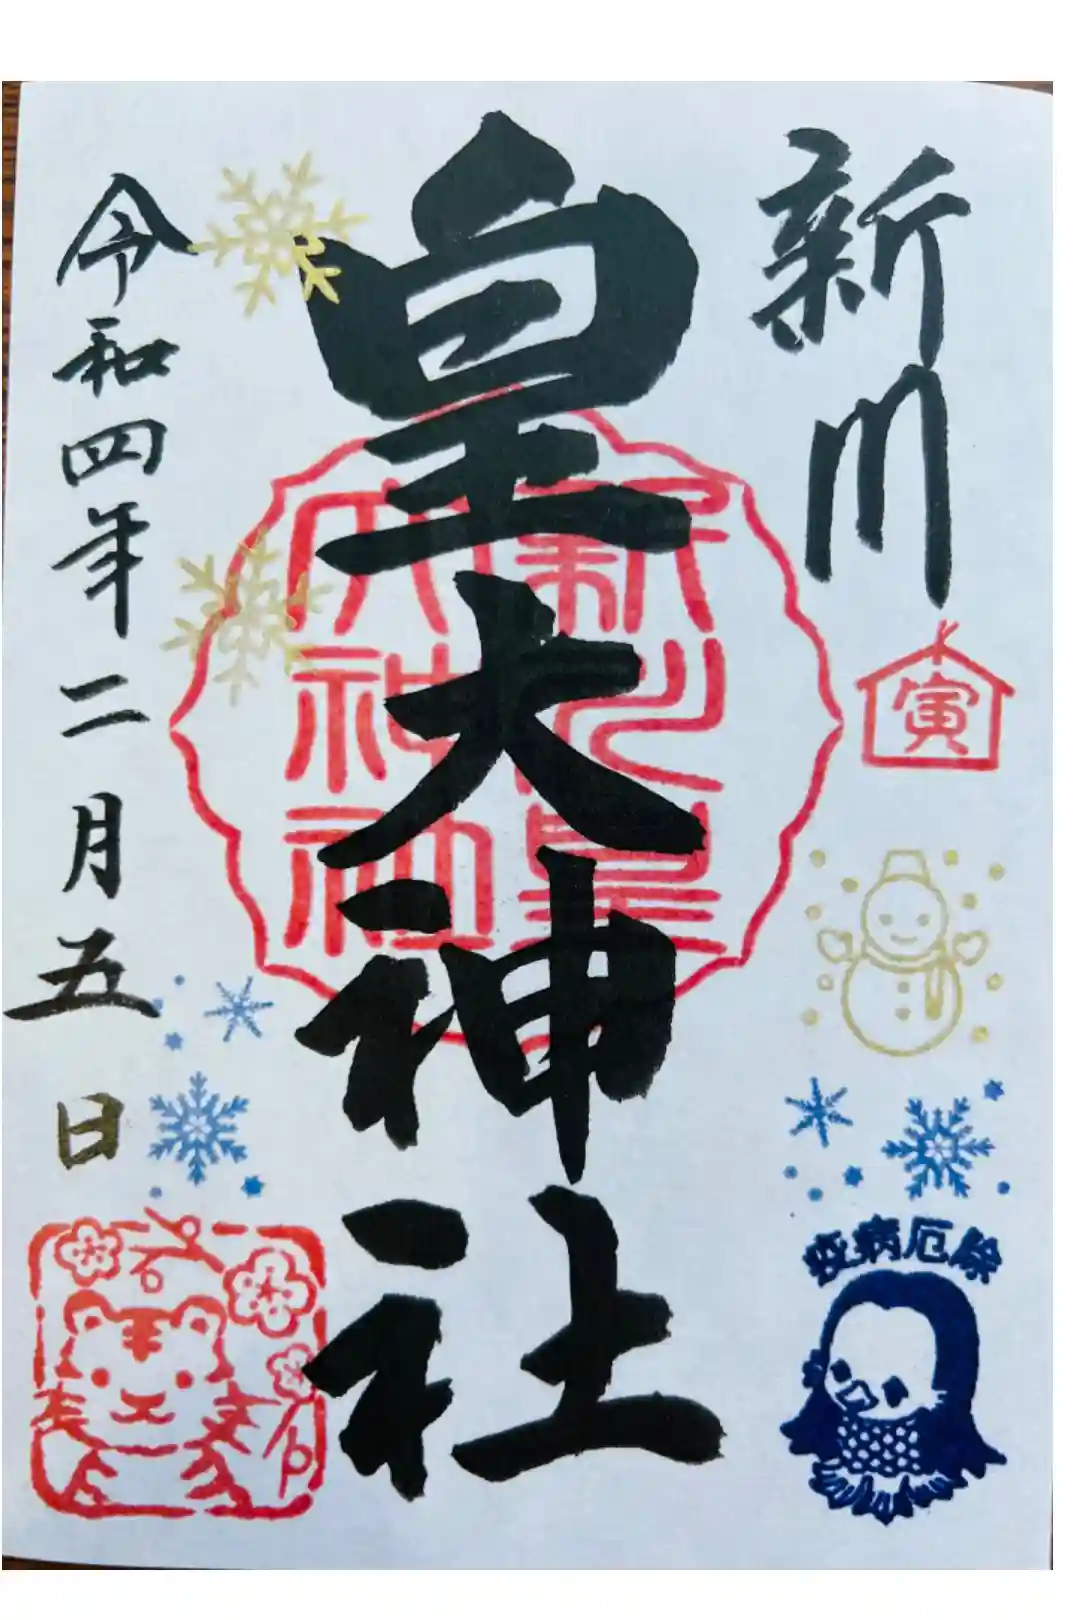 新川
皇大神社
新川皇
大神社
令和四年二月五日
寅
疫病厄除